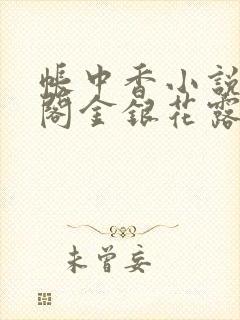 帐中香小説
閣金銀花露
未曾妄